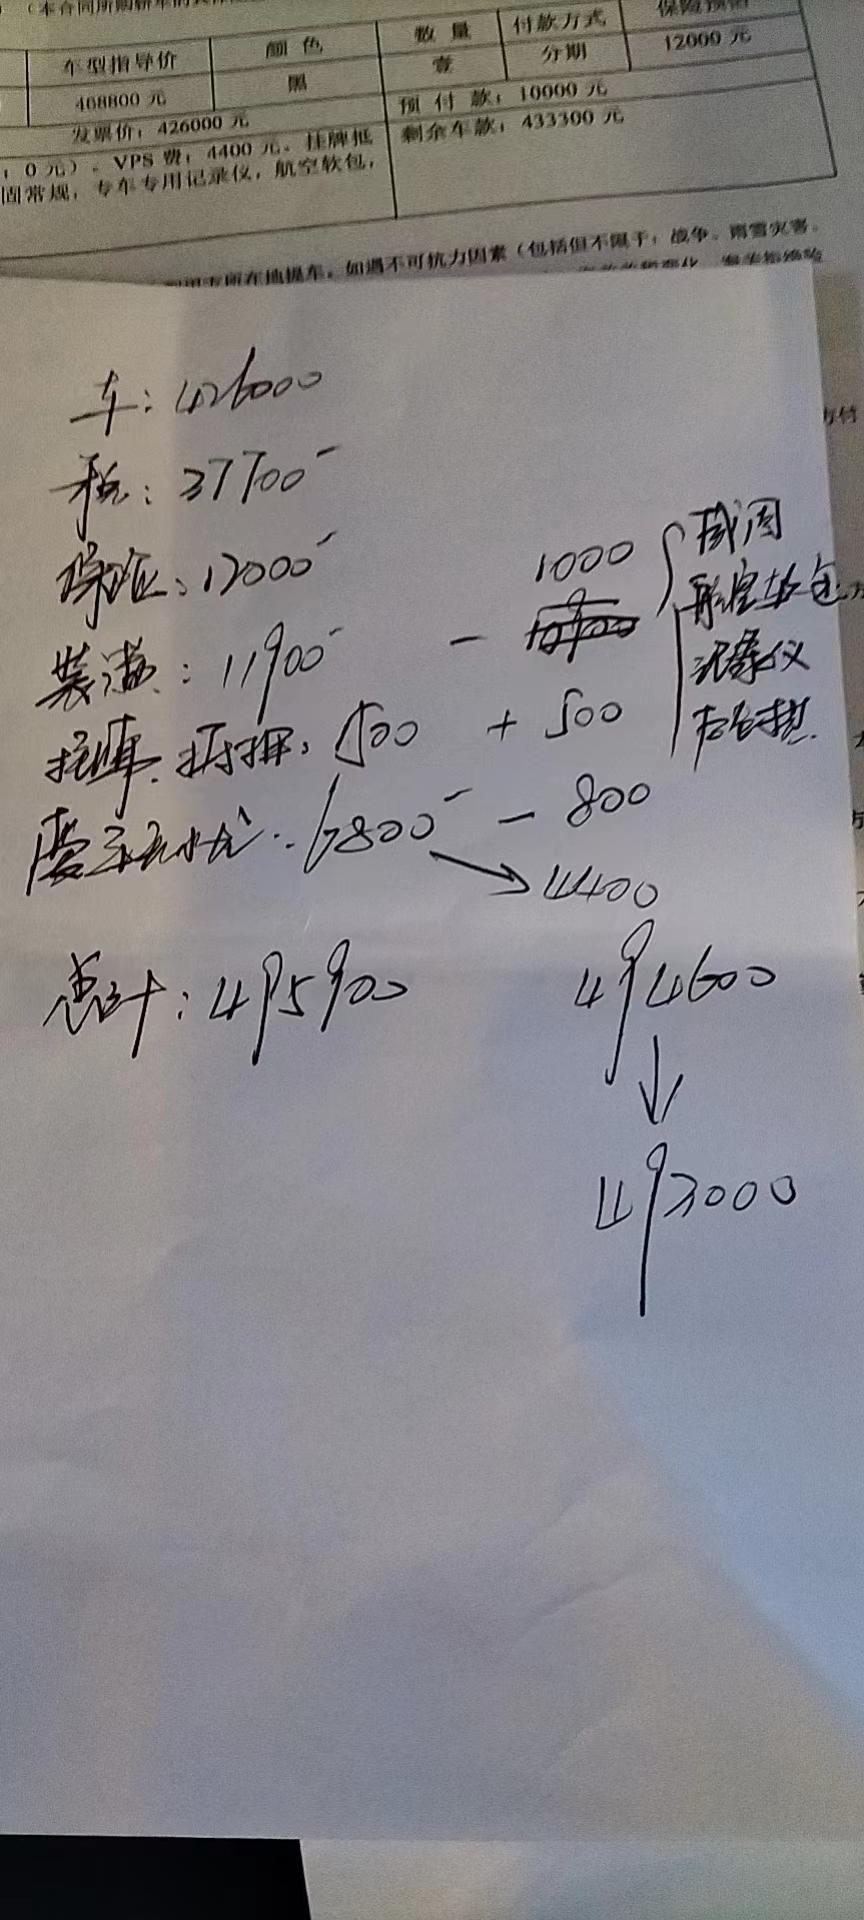 (本合同所购新车的具体
车型指导价 颜色 数量 付款方式 保险预估
468800 元 黑 壹 分期 12000 元
发票价：426000 元 预付款：10000 元
：0 元）、VPS 费：4400 元、挂牌抵 剩余车款：433300 元
固常规，专车专用记录仪，航空软包，
所在地提车。如遇不可抗力因素（包括但不限于：战争、雨雪灾害、
车：426000
税：37700
保证：12000
装潢：11900 - 1000
航空软包
记录仪
挂牌、抵押：500 + 500
爱车无忧：6800 - 800
→ 4400
总计：495900 494600
↓
493000
方付